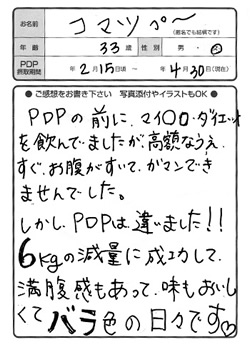 お名前 コマツパ〜
(匿名でも結構です)
年齢 33歳 性別 男・女
PDP摂取期間 年2月15日頃 〜 年4月30日(現在)
●ご感想をお書き下さい 写真添付やイラストもOK●
PDPの前に、マイクロ・ダイエット
を飲んでましたが高額なうえ、
すぐ、お腹がすいて、ガマンでき
ませんでした。
しかし、PDPは、違いました!!
6kgの減量に成功して、
満腹感もあって、味もおいし
くてバラ色の日々です♡